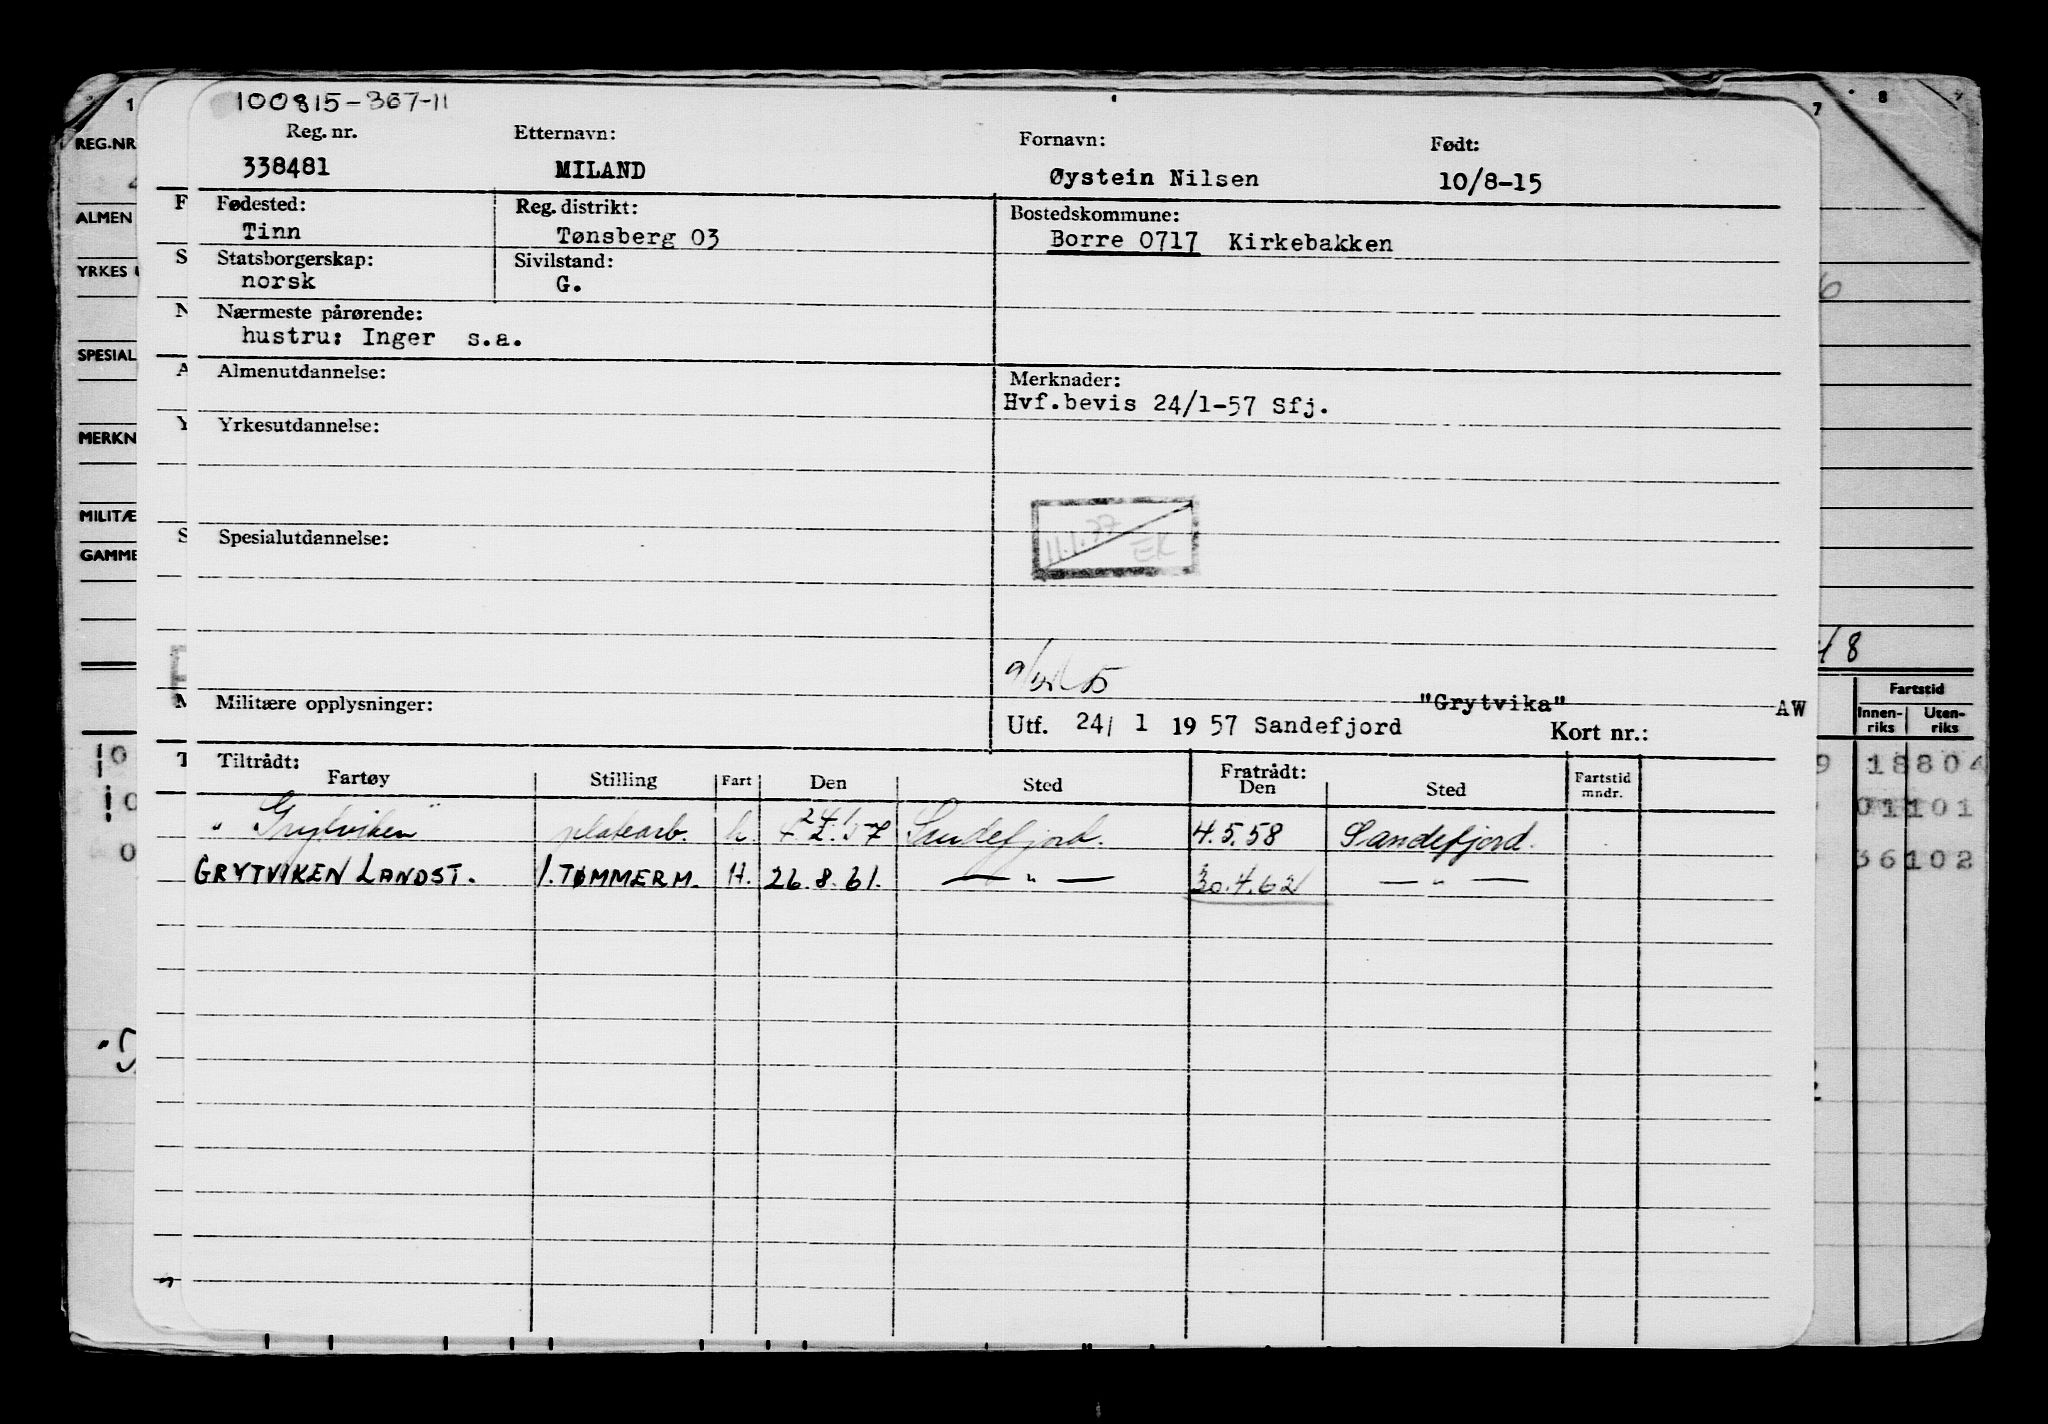 100815-367-11
Reg. nr. Etternavn: Fornavn: Født:
338481 MILAND Øystein Nilsen 10/8-15
Fødested: Reg. distrikt: Bostedskommune:
Tinn Tønsberg 03 Borre 0717 Kirkebakken
Statsborgerskap: Sivilstand:
norsk G.
Nærmeste pårørende:
hustru: Inger s.a.
Almenutdannelse: Merknader:
Hvf.bevis 24/1-57 Sfj.
Yrkesutdannelse:
Spesialutdannelse:
11.1.77 EK
Militære opplysninger: "Grytvika" AW
Utf. 24/ 1 1957 Sandefjord Kort nr.:
Tiltrådt: Fratrådt:
Fartøy Stilling Fart Den Sted Den Sted Fartstid mndr.
"Grytviken" platearb. h. 24/ Sandefjord. 4.5.58 Sandefjord.
GRYTVIKEN LANDST. 1. TØMMERM. H. 26.8.61. — " — 30.4.62 — " —
1
REG.NR
ALMEN
YRKES
SPESIAL
MERKN
MILITÆ
GAMME
F
S
N
A
Y
S
M
T
7 8
Fartstid
Innen-riks Uten-riks
18804
01101
36102